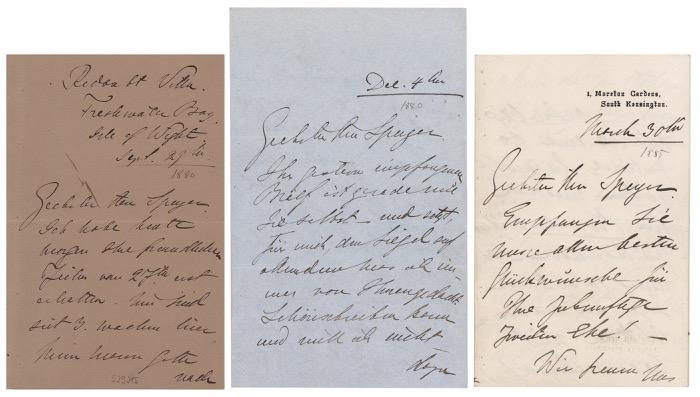 Redan St Villa
Freshwater Bay
Isle of Wight
Sept. 29th
1880
Geehrter Herr Speyer.
Ich habe heute
morgen Ihre freundlichen
Zeilen von 27th erst
erhalten. Wir sind
seit 3. Wochen hier
Mein Mann geht
nach
529215
Dec. 4th
1880
Geehrter Herr Speyer.
Ihr gestern empfangener
Brief ist gerade wie
Sie selbst – und setzt
für mich den Siegel auf
was ich im
mer von Ihnen gedacht
Schönschreiben kann
und will ich nicht
1, Moreton Gardens,
South Kensington.
March 30th
1885
Geehrter Herr Speyer
Empfangen Sie
unsere allerbesten
Glückwünsche für
Ihre Zukunftige
Ehe! –
Wir freuen uns